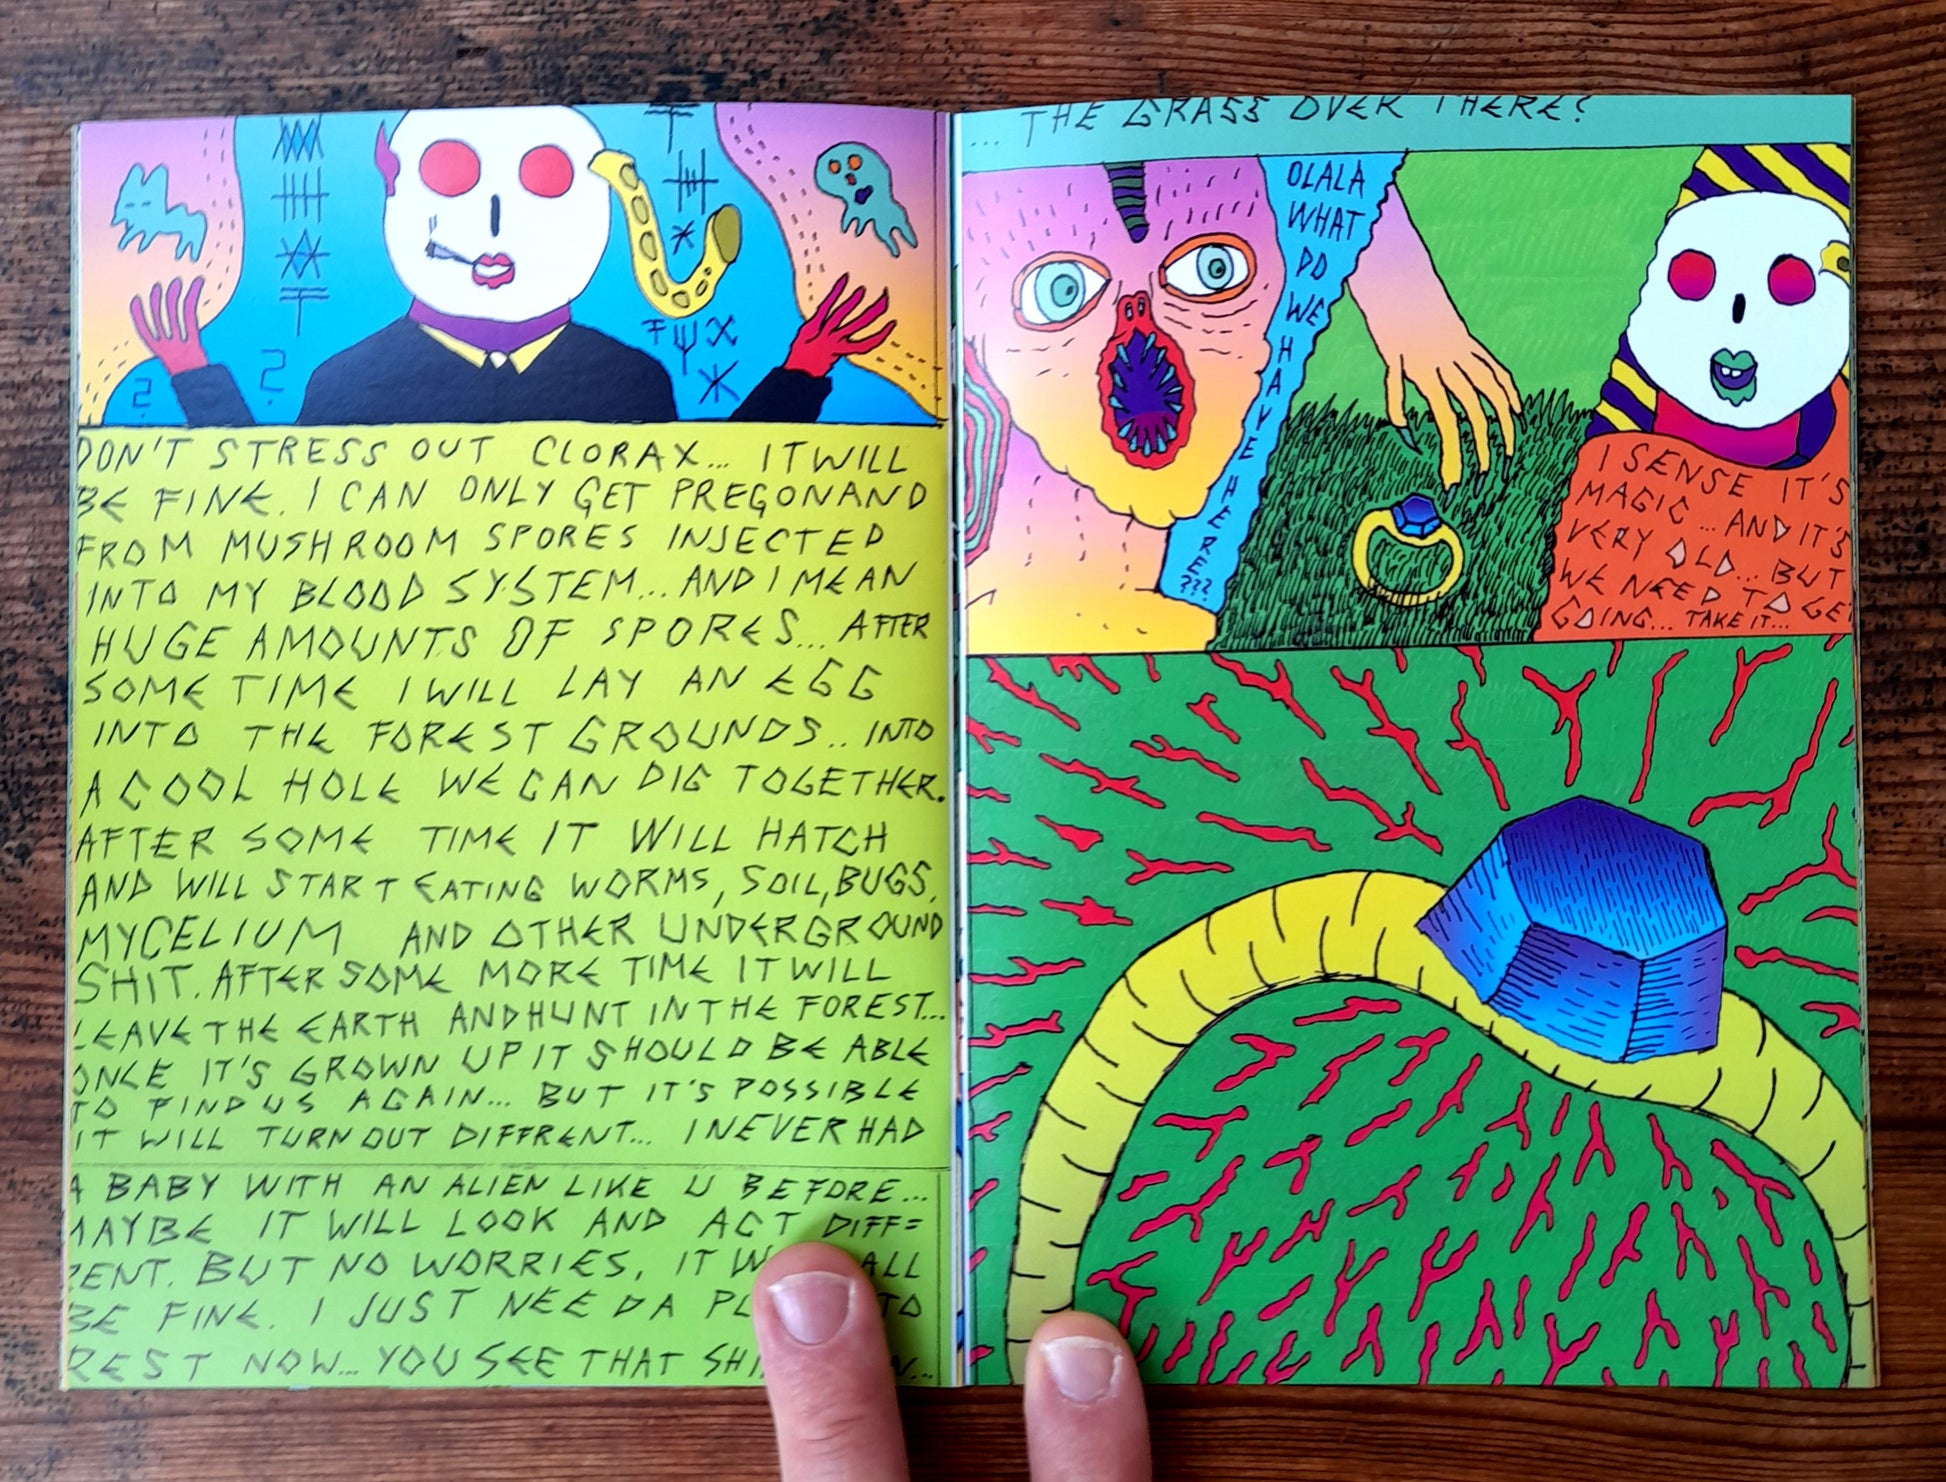 DON'T STRESS OUT CLORAX... IT WILL
BE FINE. I CAN ONLY GET PREGONAND
FROM MUSHROOM SPORES INJECTED
INTO MY BLOOD SYSTEM... AND I MEAN
HUGE AMOUNTS OF SPORES... AFTER
SOME TIME I WILL LAY AN EGG
INTO THE FOREST GROUNDS.. INTO
A COOL HOLE WE CAN DIG TOGETHER.
AFTER SOME TIME IT WILL HATCH
AND WILL START EATING WORMS, SOIL, BUGS,
MYCELIUM AND OTHER UNDERGROUND
SHIT. AFTER SOME MORE TIME IT WILL
LEAVE THE EARTH AND HUNT IN THE FOREST...
ONCE IT'S GROWN UP IT SHOULD BE ABLE
TO FIND US AGAIN... BUT IT'S POSSIBLE
IT WILL TURN OUT DIFFRENT... I NEVER HAD
A BABY WITH AN ALIEN LIKE U BEFORE...
MAYBE IT WILL LOOK AND ACT DIFF=
RENT. BUT NO WORRIES, IT ALL
BE FINE. I JUST NEED A TO
REST NOW... YOU SEE THAT
... THE GRASS OVER THERE?
OLALA
WHAT
DO
WE
HAVE
HERE
???
I SENSE IT'S
MAGIC ... AND IT'S
VERY OLD... BUT
WE NEED TO GET
GOING... TAKE IT...